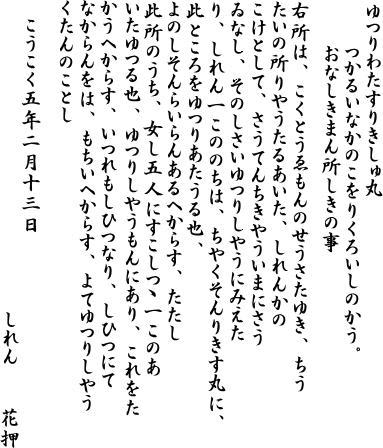 ゆつりわたすりきしゆ丸
つかるいなかのこをりくろいしのかう。
おなしきまん所しきの事
右所は、こくとうゑもんのせうさたゆき、ちう
たいの所りやうたるあいた、しれんかの
こけとして、さうてんちきやういまにさう
ゐなし、そのしさいゆつりしやうにみえた
り、しれん一このゝちは、ちやくそんりきす丸に、
此ところをゆつりあたうる也、
よのしそんらいらんあるへからす、たたし
此所のうち、女し五人にすこしつゝ一このあ
いたゆつる也、ゆつりしやうもんにあり、これをた
かうへからす、いつれもしひつなり、しひつにて
なからんをは、もちいへからす、よてゆつりしやう
くたんのことし
こうこく五年二月十三日
しれん 花押